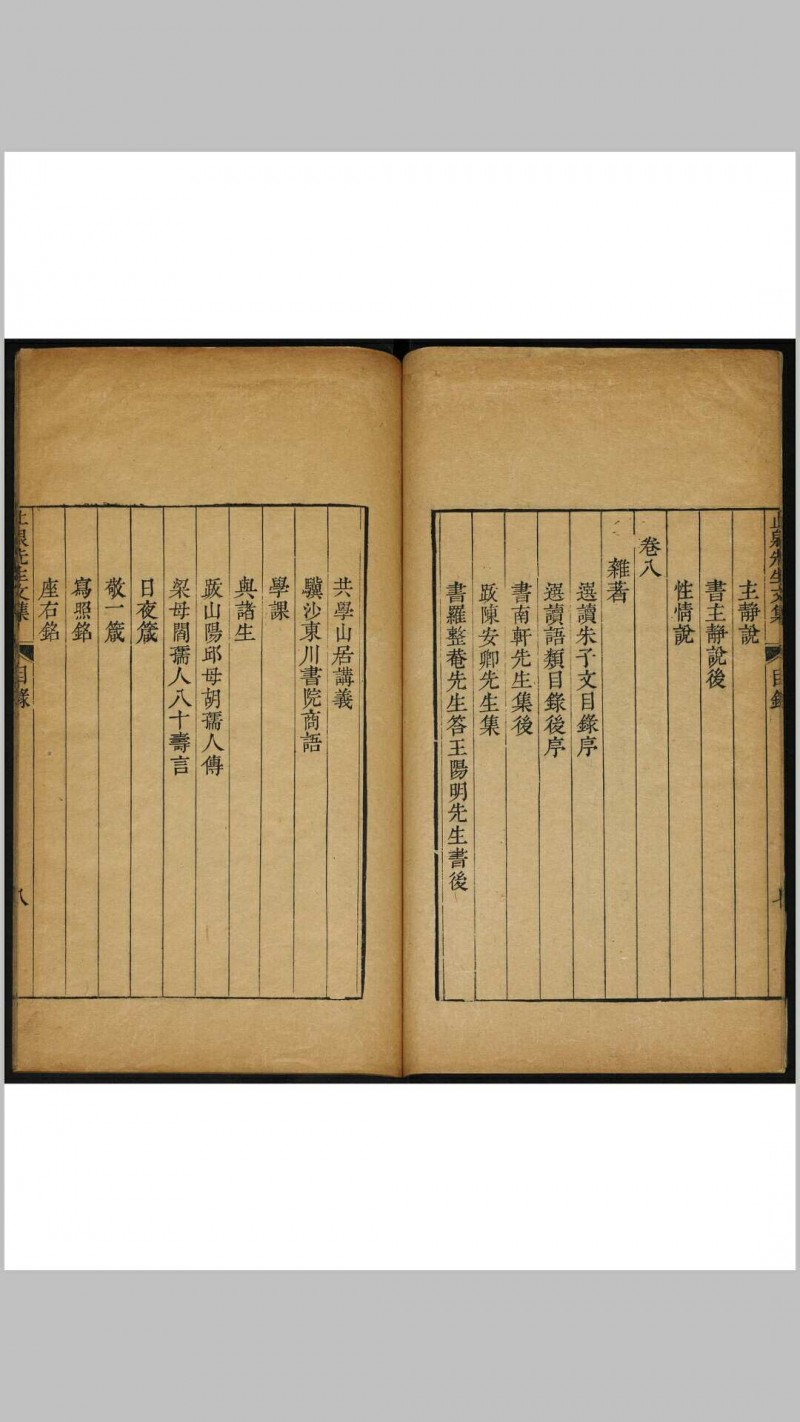 止泉先生文集 目錄 七
主靜說
書主靜說後
性情說
卷八
雜著
選讀朱子文目錄序
選讀語類目錄後序
書南軒先生集後
跋陳安卿先生集
書羅整菴先生答王陽明先生書後
共學山居講義
驥沙東川書院商語
學課
與諸生
跋山陽邱母胡孺人傳
梁母閻孺人八十壽言
日夜箴
敬一箴
寫照銘
座右銘
止泉先生文集 目錄 八